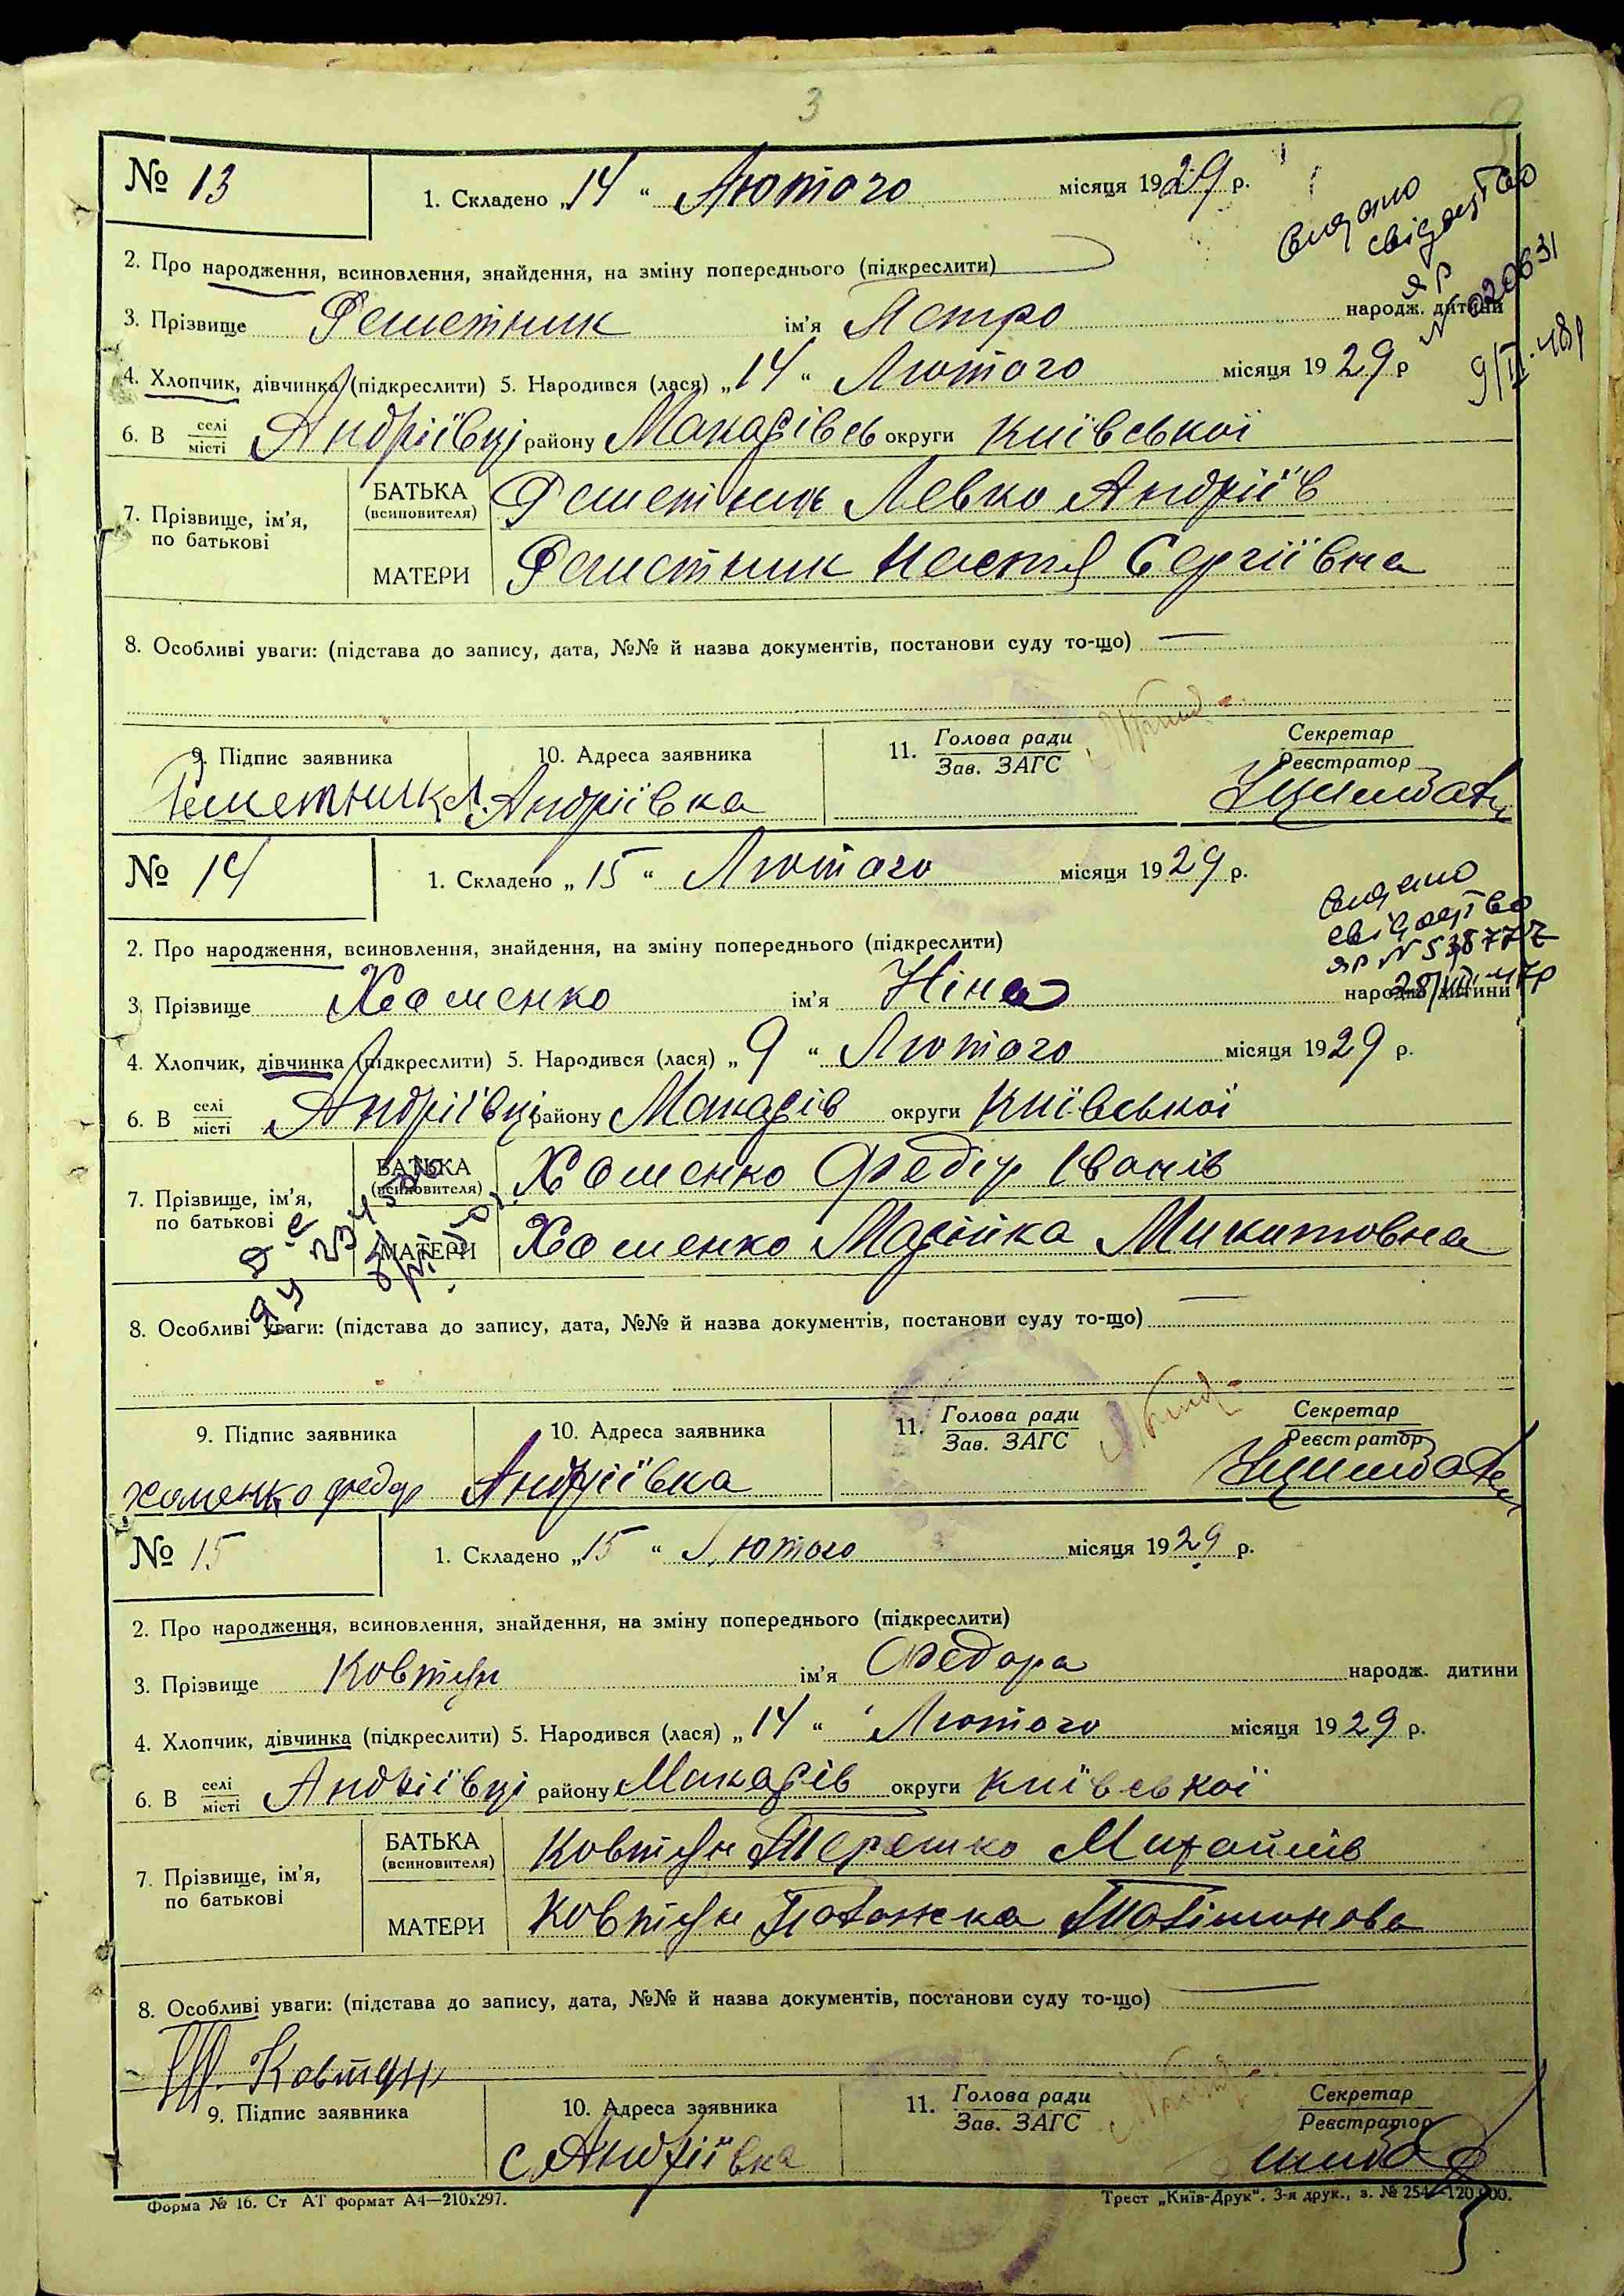 3
№ 13
1. Складено „14“ Лютого місяця 1929 р.
видано
свідоцтво
ЯР
№ 020631
9/II-48р
2. Про народження, всиновлення, знайдення, на зміну попереднього (підкреслити)
3. Прізвище Решетник ім'я Петро народж. дитини
4. Хлопчик, дівчинка (підкреслити) 5. Народився (лася) „14“ Лютого місяця 1929 р
6. В селі місті Андріївці району Макарівсь округи Київської
7. Прізвище, ім'я, по батькові
БАТЬКА (всиновителя) Решетник Левко Андріїв
МАТЕРИ Решетник Настя Сергіївна
8. Особливі уваги: (підстава до запису, дата, №№ й назва документів, постанови суду то-що) —
9. Підпис заявника 10. Адреса заявника 11. Голова ради Зав. ЗАГС Секретар Реєстратор
Решетник Л. Андріївка
№ 14
1. Складено „15“ Лютого місяця 1929 р.
видано
свідоцтво
ЯР № 538777
28/VII-47р
2. Про народження, всиновлення, знайдення, на зміну попереднього (підкреслити)
3. Прізвище Хоменко ім'я Ніна народж. дитини
4. Хлопчик, дівчинка (підкреслити) 5. Народився (лася) „9“ Лютого місяця 1929 р.
6. В селі місті Андріївці району Макарів округи Київської
7. Прізвище, ім'я, по батькові
БАТЬКА (всиновителя) Хоменко Федір Іванів
МАТЕРИ Хоменко Марійка Микитовна
8. Особливі уваги: (підстава до запису, дата, №№ й назва документів, постанови суду то-що) —
9. Підпис заявника 10. Адреса заявника 11. Голова ради Зав. ЗАГС Секретар Реєстратор
хоменко федор Андріївка
№ 15
1. Складено „15“ Лютого місяця 1929 р.
2. Про народження, всиновлення, знайдення, на зміну попереднього (підкреслити)
3. Прізвище Ковтун ім'я Федора народж. дитини
4. Хлопчик, дівчинка (підкреслити) 5. Народився (лася) „14“ Лютого місяця 1929 р.
6. В селі місті Андріївці району Макарів округи Київської
7. Прізвище, ім'я, по батькові
БАТЬКА (всиновителя) Ковтун Терешко Михайлів
МАТЕРИ Ковтун Палажка
8. Особливі уваги: (підстава до запису, дата, №№ й назва документів, постанови суду то-що) —
Т. Ковтун
9. Підпис заявника 10. Адреса заявника 11. Голова ради Зав. ЗАГС Секретар Реєстратор
с. Андріївка
Форма № 16. Ст АТ формат А4—210x297.
Трест „Київ-Друк“. 3-я друк., з. № 254—120.000.